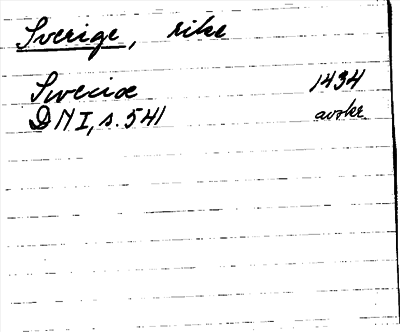 Sverige, rike
Swecia 1434
DN I, s. 541 avskr.